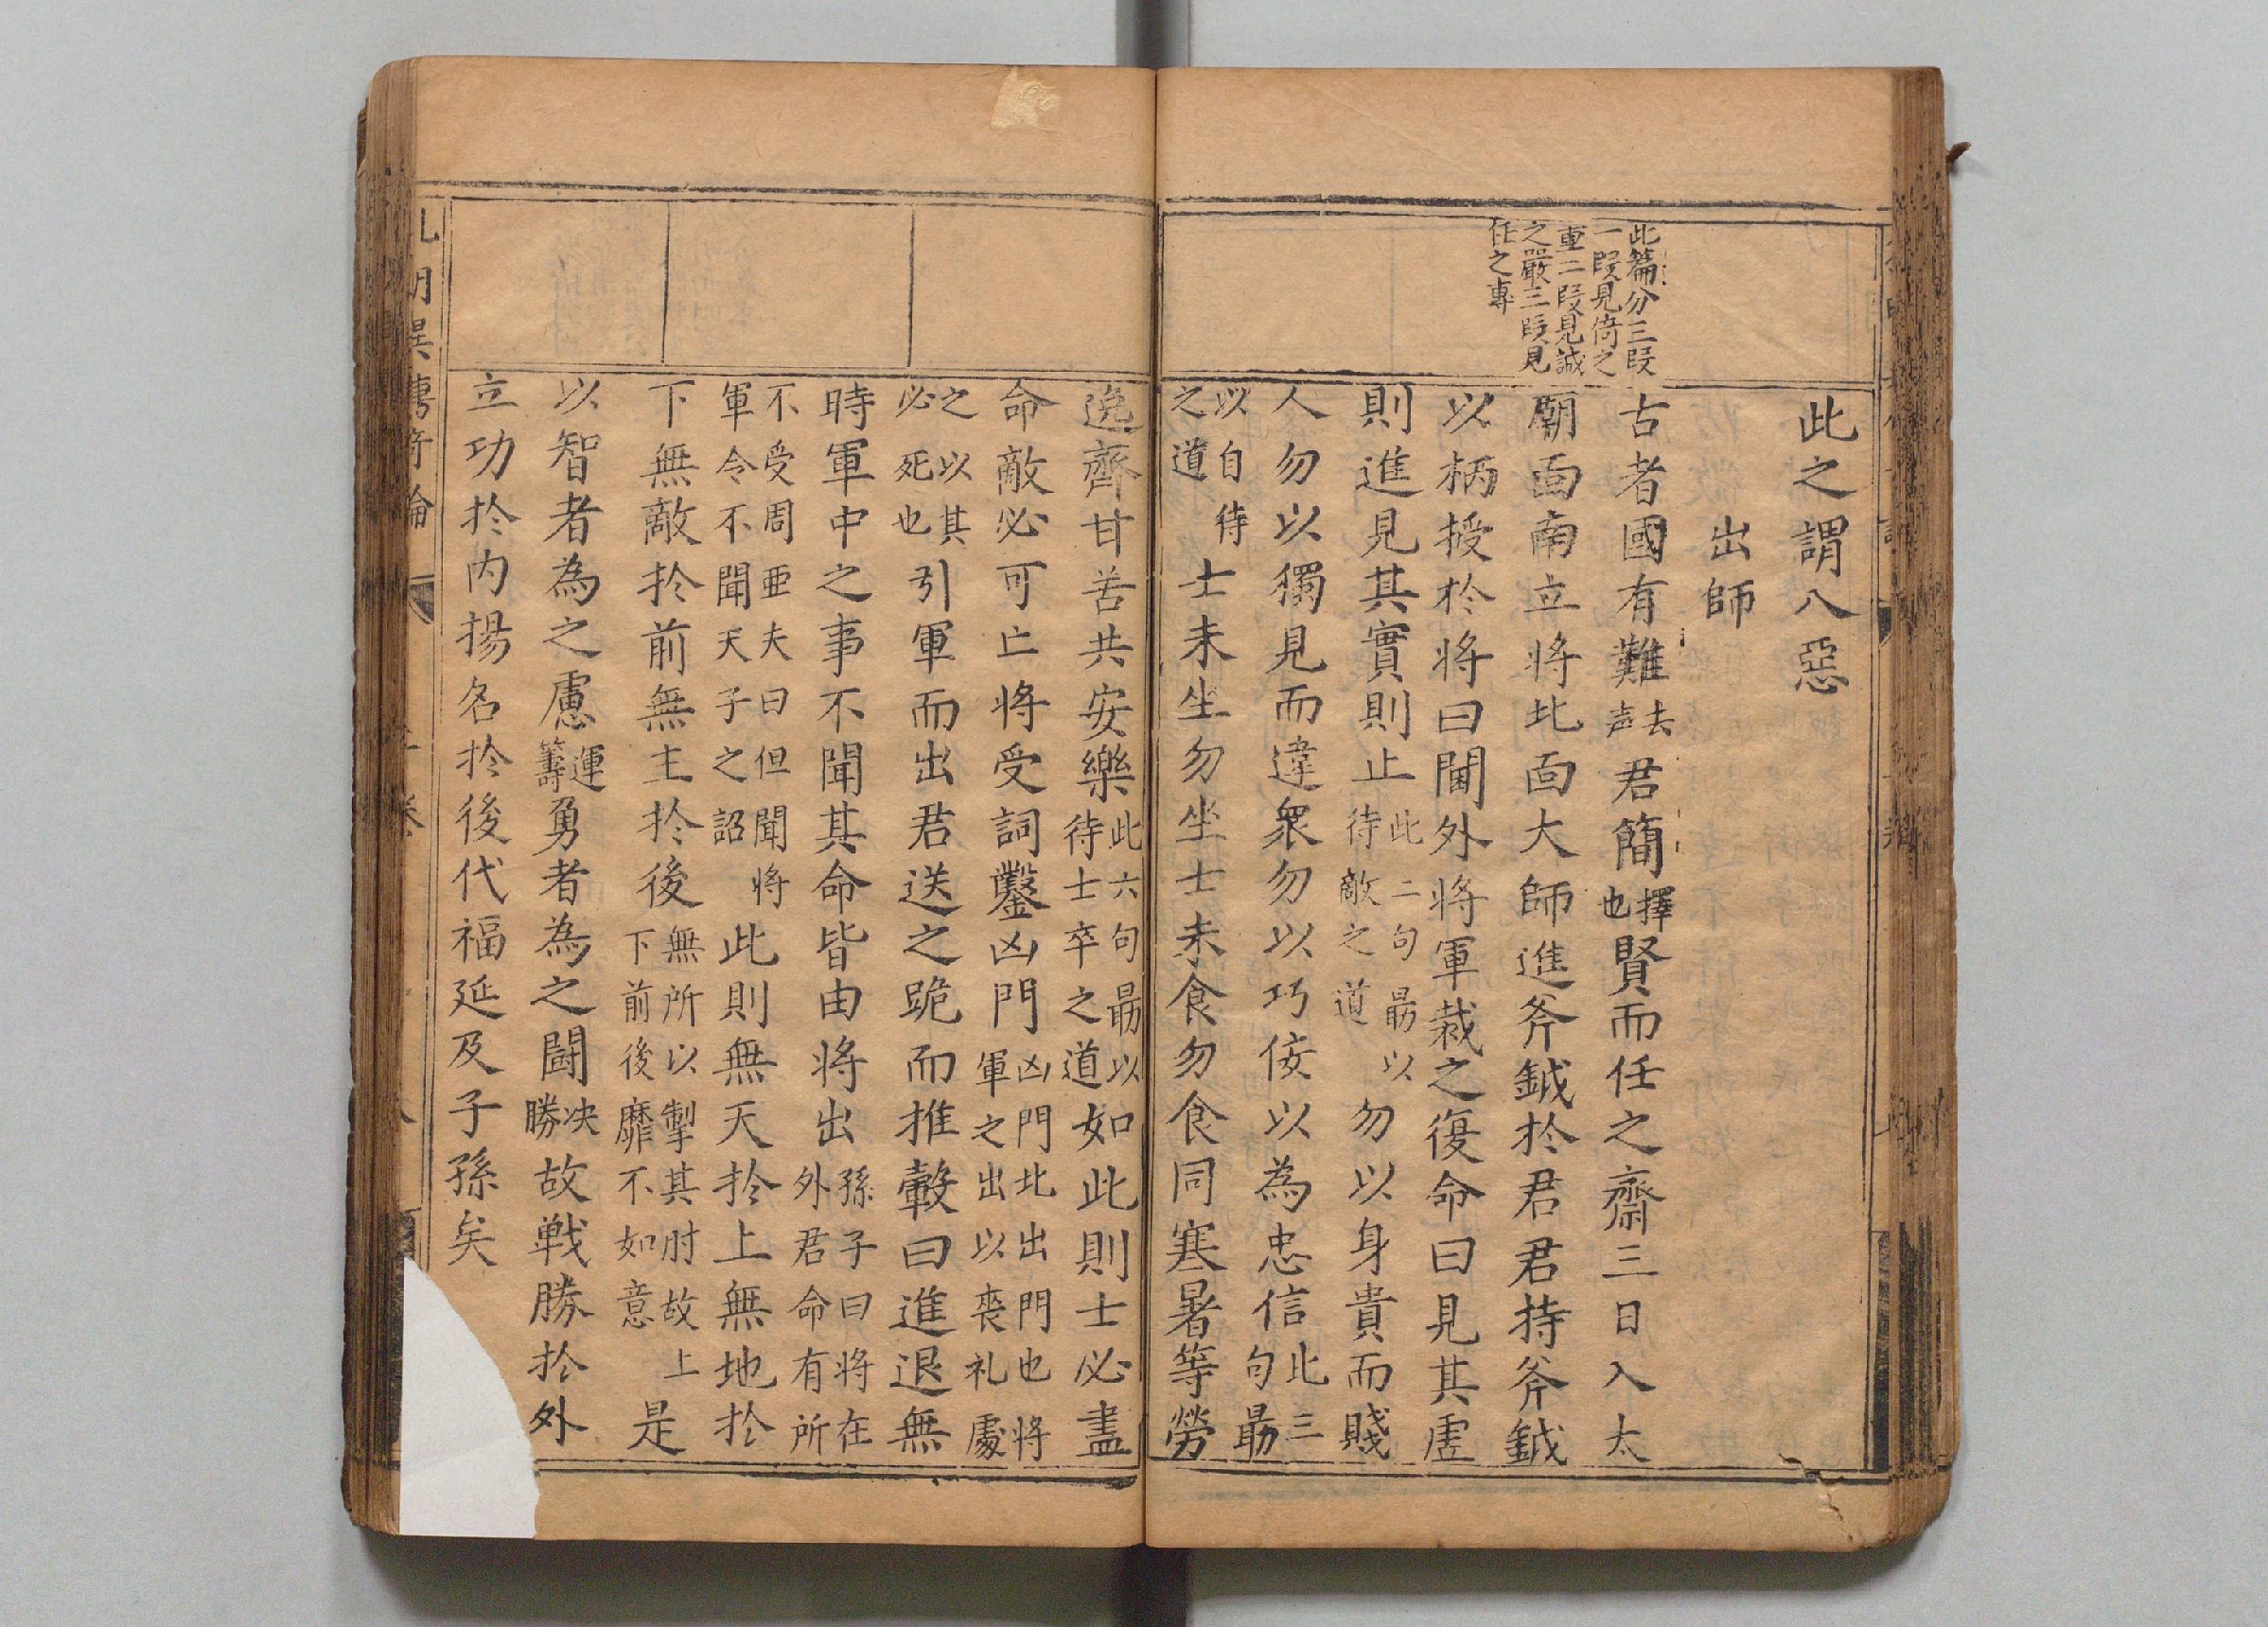 此篇分三段
一段見倚之
重二段見誠
之嚴三段見
任之專
此之謂八惡
出師
古者國有難去声君簡擇也賢而任之齋三日入太
廟面南立将北面大師進斧鉞扵君君持斧鉞
以柄授扵将曰閫外将軍裁之復命曰見其虛
則進見其實則止此二句最以待敵之道勿以身貴而賤
人勿以獨見而違衆勿以巧佞以為忠信此三句最
以自待之道士未坐勿坐士未食勿食同寒暑等勞
逸齊甘苦共安樂此六句最以待士卒之道如此則士必盡
命敵必可亡将受詞鑿凶門凶門北出門也将軍之出以喪礼處
之以其必死也引軍而出君送之跪而推轂曰進退無
時軍中之事不聞其命皆由将出孫子曰将在外君命有所
不受周亜夫曰但聞将軍令不聞天子之詔此則無天扵上無地扵
下無敵扵前無主扵後無所以掣其肘故上下前後靡不如意是
以智者為之慮運籌勇者為之闘决勝故戦勝扵外
立功扵内揚名扵後代福延及子孫矣